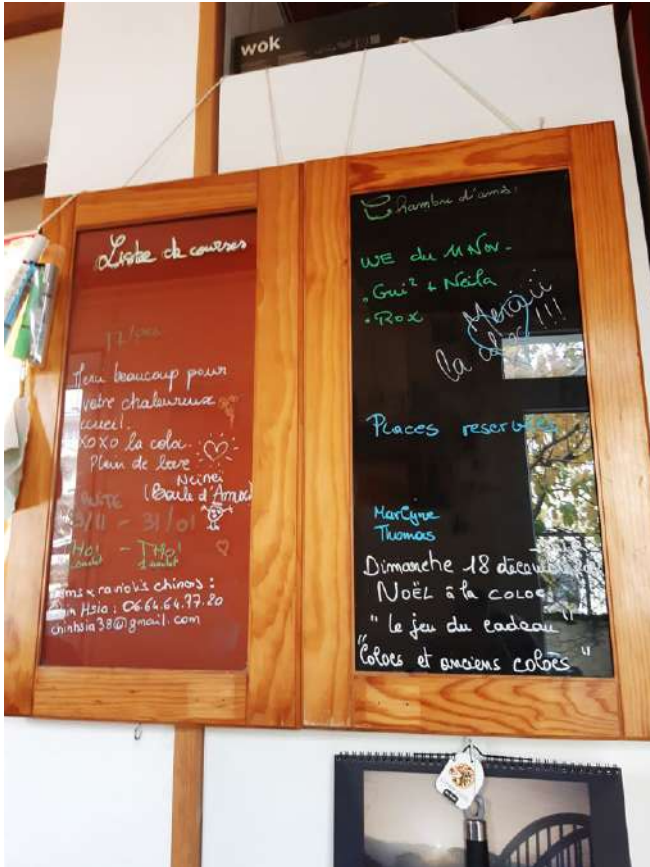 wok
Liste de courses
beaucoup pour
votre chaleureux
accueil.
XOXO la coloc.
Plein de love
Neinei
(Boule d'Amour)
3/11 - 31/01
raviolis chinois :
Hsia : 06.64.64.77.20
chinhsia38@gmail.com
Chambre d'amis:
WE du 11 Nov.
. Gui² & Neila
. Rox
Merciii
la coloc !!!
Places reservées
Martyne
Thomas
Dimanche 18 décembre
NOËL à la coloc
" le jeu du cadeau "
"Colocs et anciens colocs"